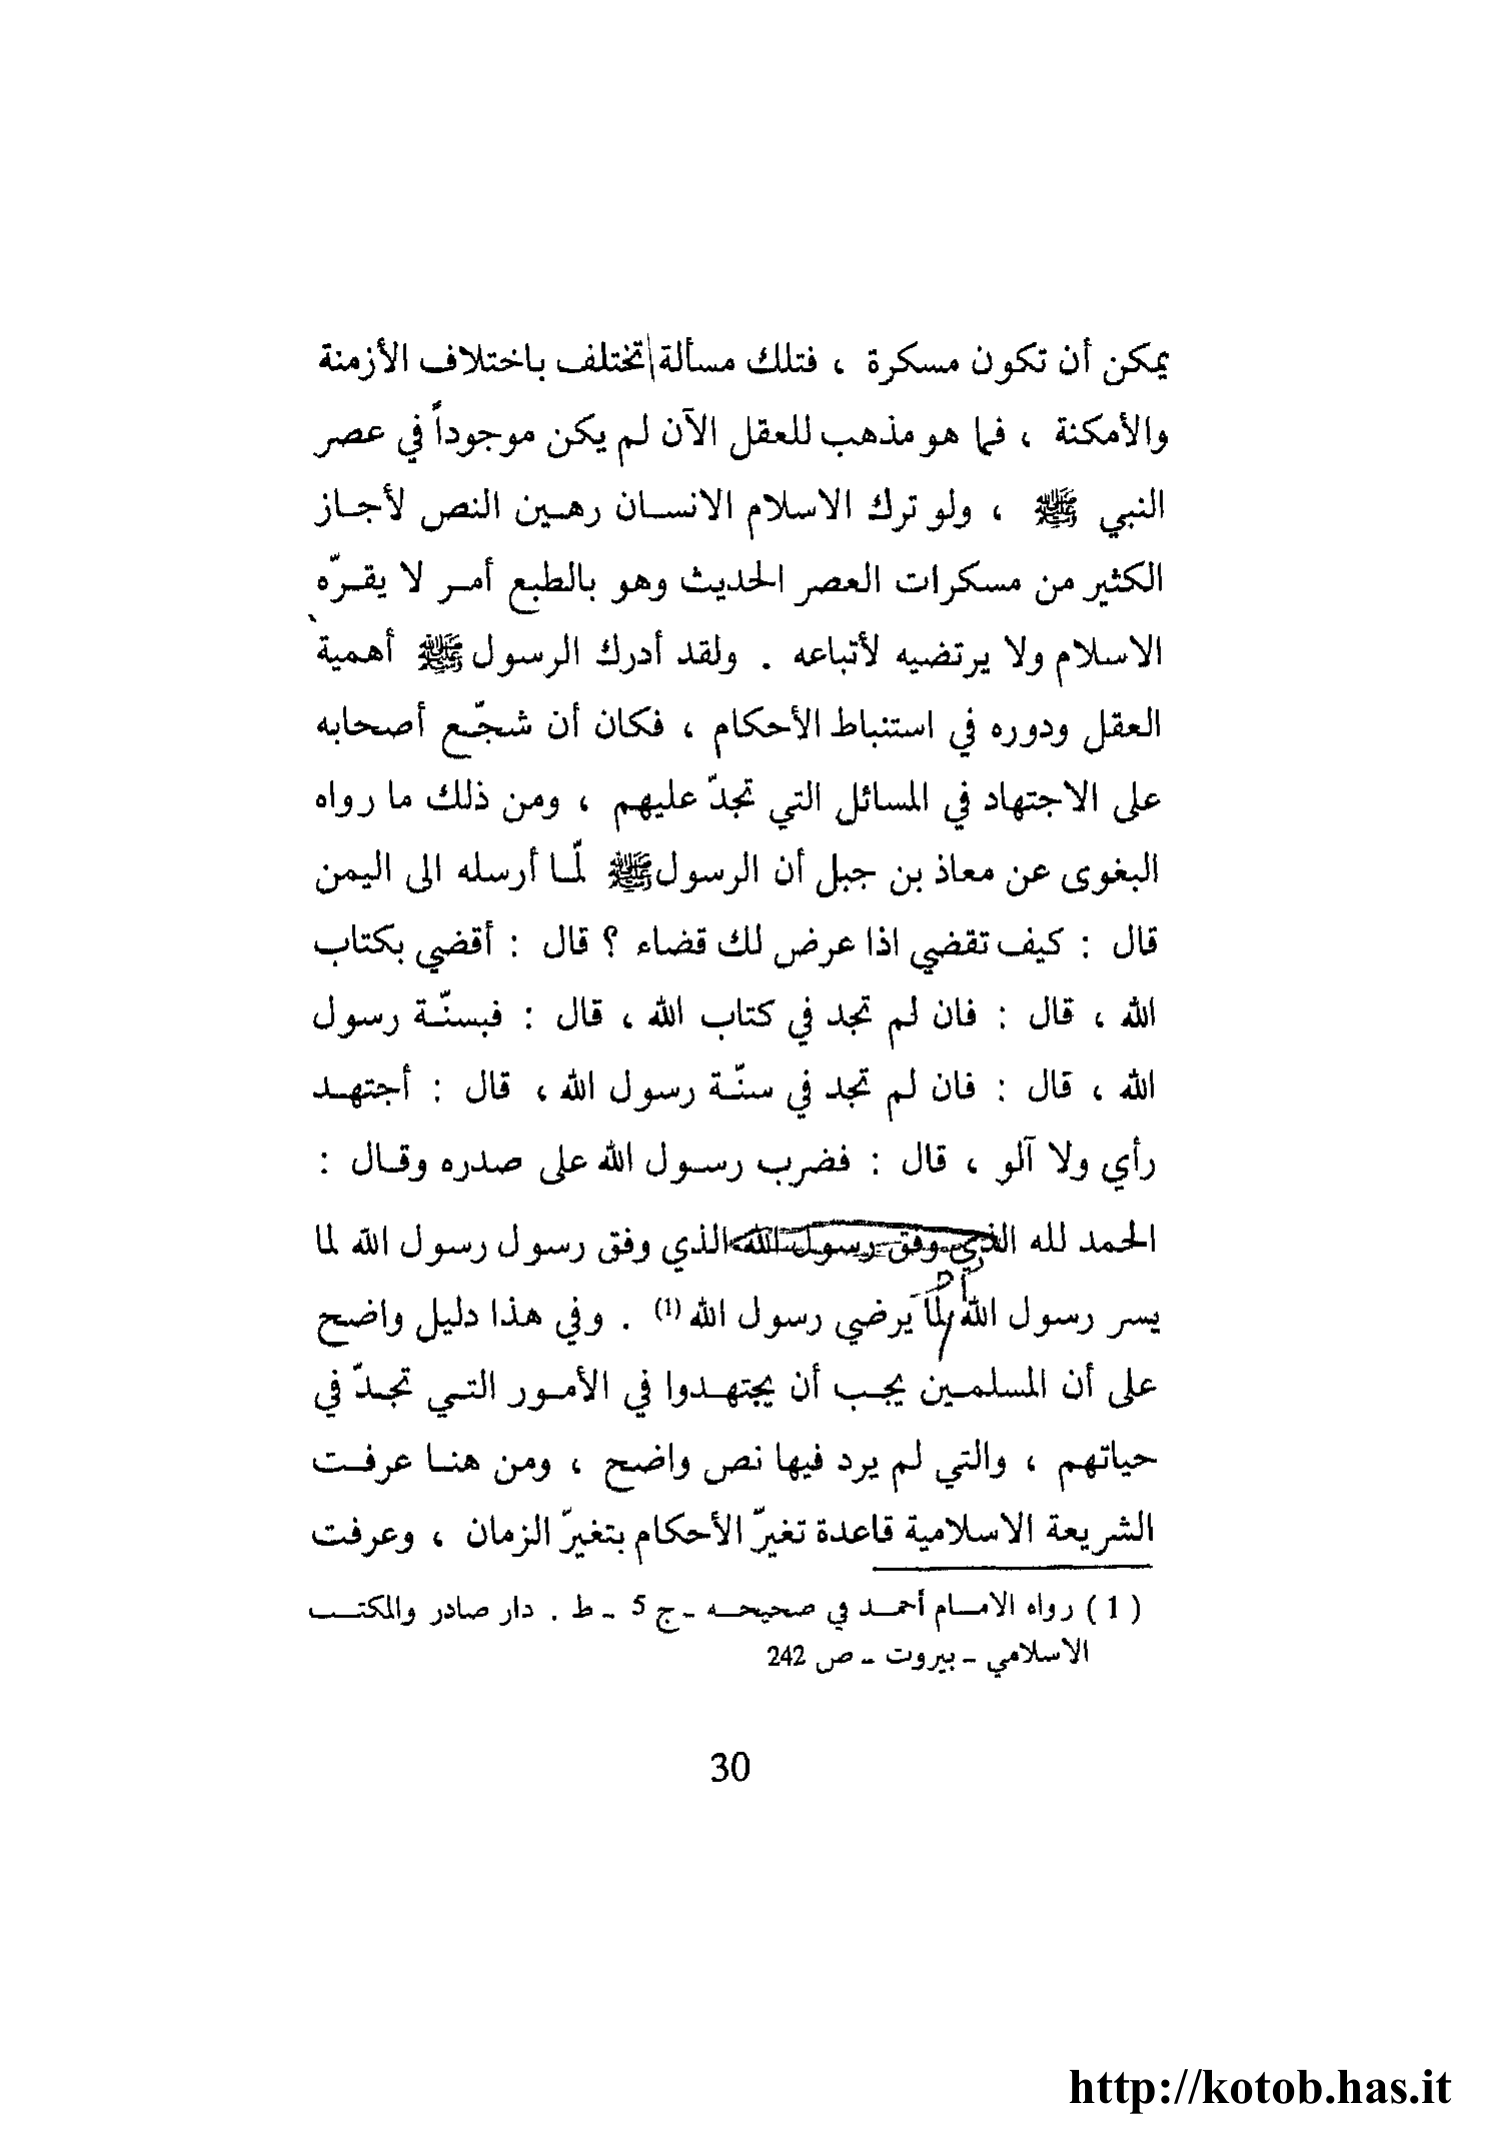 يمكن أن تكون مسكرة ، فتلك مسألة تختلف باختلاف الأزمنة
والأمكنة ، فما هو مذهب للعقل الآن لم يكن موجوداً في عصر
النبي ﷺ ، ولو ترك الاسلام الانسان رهين النص لأجاز
الكثير من مسكرات العصر الحديث وهو بالطبع أمر لا يقرّه
الاسلام ولا يرتضيه لأتباعه . ولقد أدرك الرسول ﷺ أهمية
العقل ودوره في استنباط الأحكام ، فكان أن شجّع أصحابه
على الاجتهاد في المسائل التي تجدّ عليهم ، ومن ذلك ما رواه
البغوى عن معاذ بن جبل أن الرسول ﷺ لمّا أرسله الى اليمن
قال : كيف تقضي اذا عرض لك قضاء ؟ قال : أقضي بكتاب
الله ، قال : فان لم تجد في كتاب الله ، قال : فبسنّة رسول
الله ، قال : فان لم تجد في سنّة رسول الله ، قال : أجتهد
رأي ولا آلو ، قال : فضرب رسول الله على صدره وقال :
الحمد لله الذي وفق رسول الله الذي وفق رسول رسول الله لما
يسر رسول الله لما يرضي رسول الله (1) . وفي هذا دليل واضح
على أن المسلمين يجب أن يجتهدوا في الأمور التي تجدّ في
حياتهم ، والتي لم يرد فيها نص واضح ، ومن هنا عرفت
الشريعة الاسلامية قاعدة تغيرّ الأحكام بتغيرّ الزمان ، وعرفت
( 1 ) رواه الامام أحمد في صحيحه - ج 5 - ط . دار صادر والمكتب
الاسلامي - بيروت - ص 242
30
http://kotob.has.it